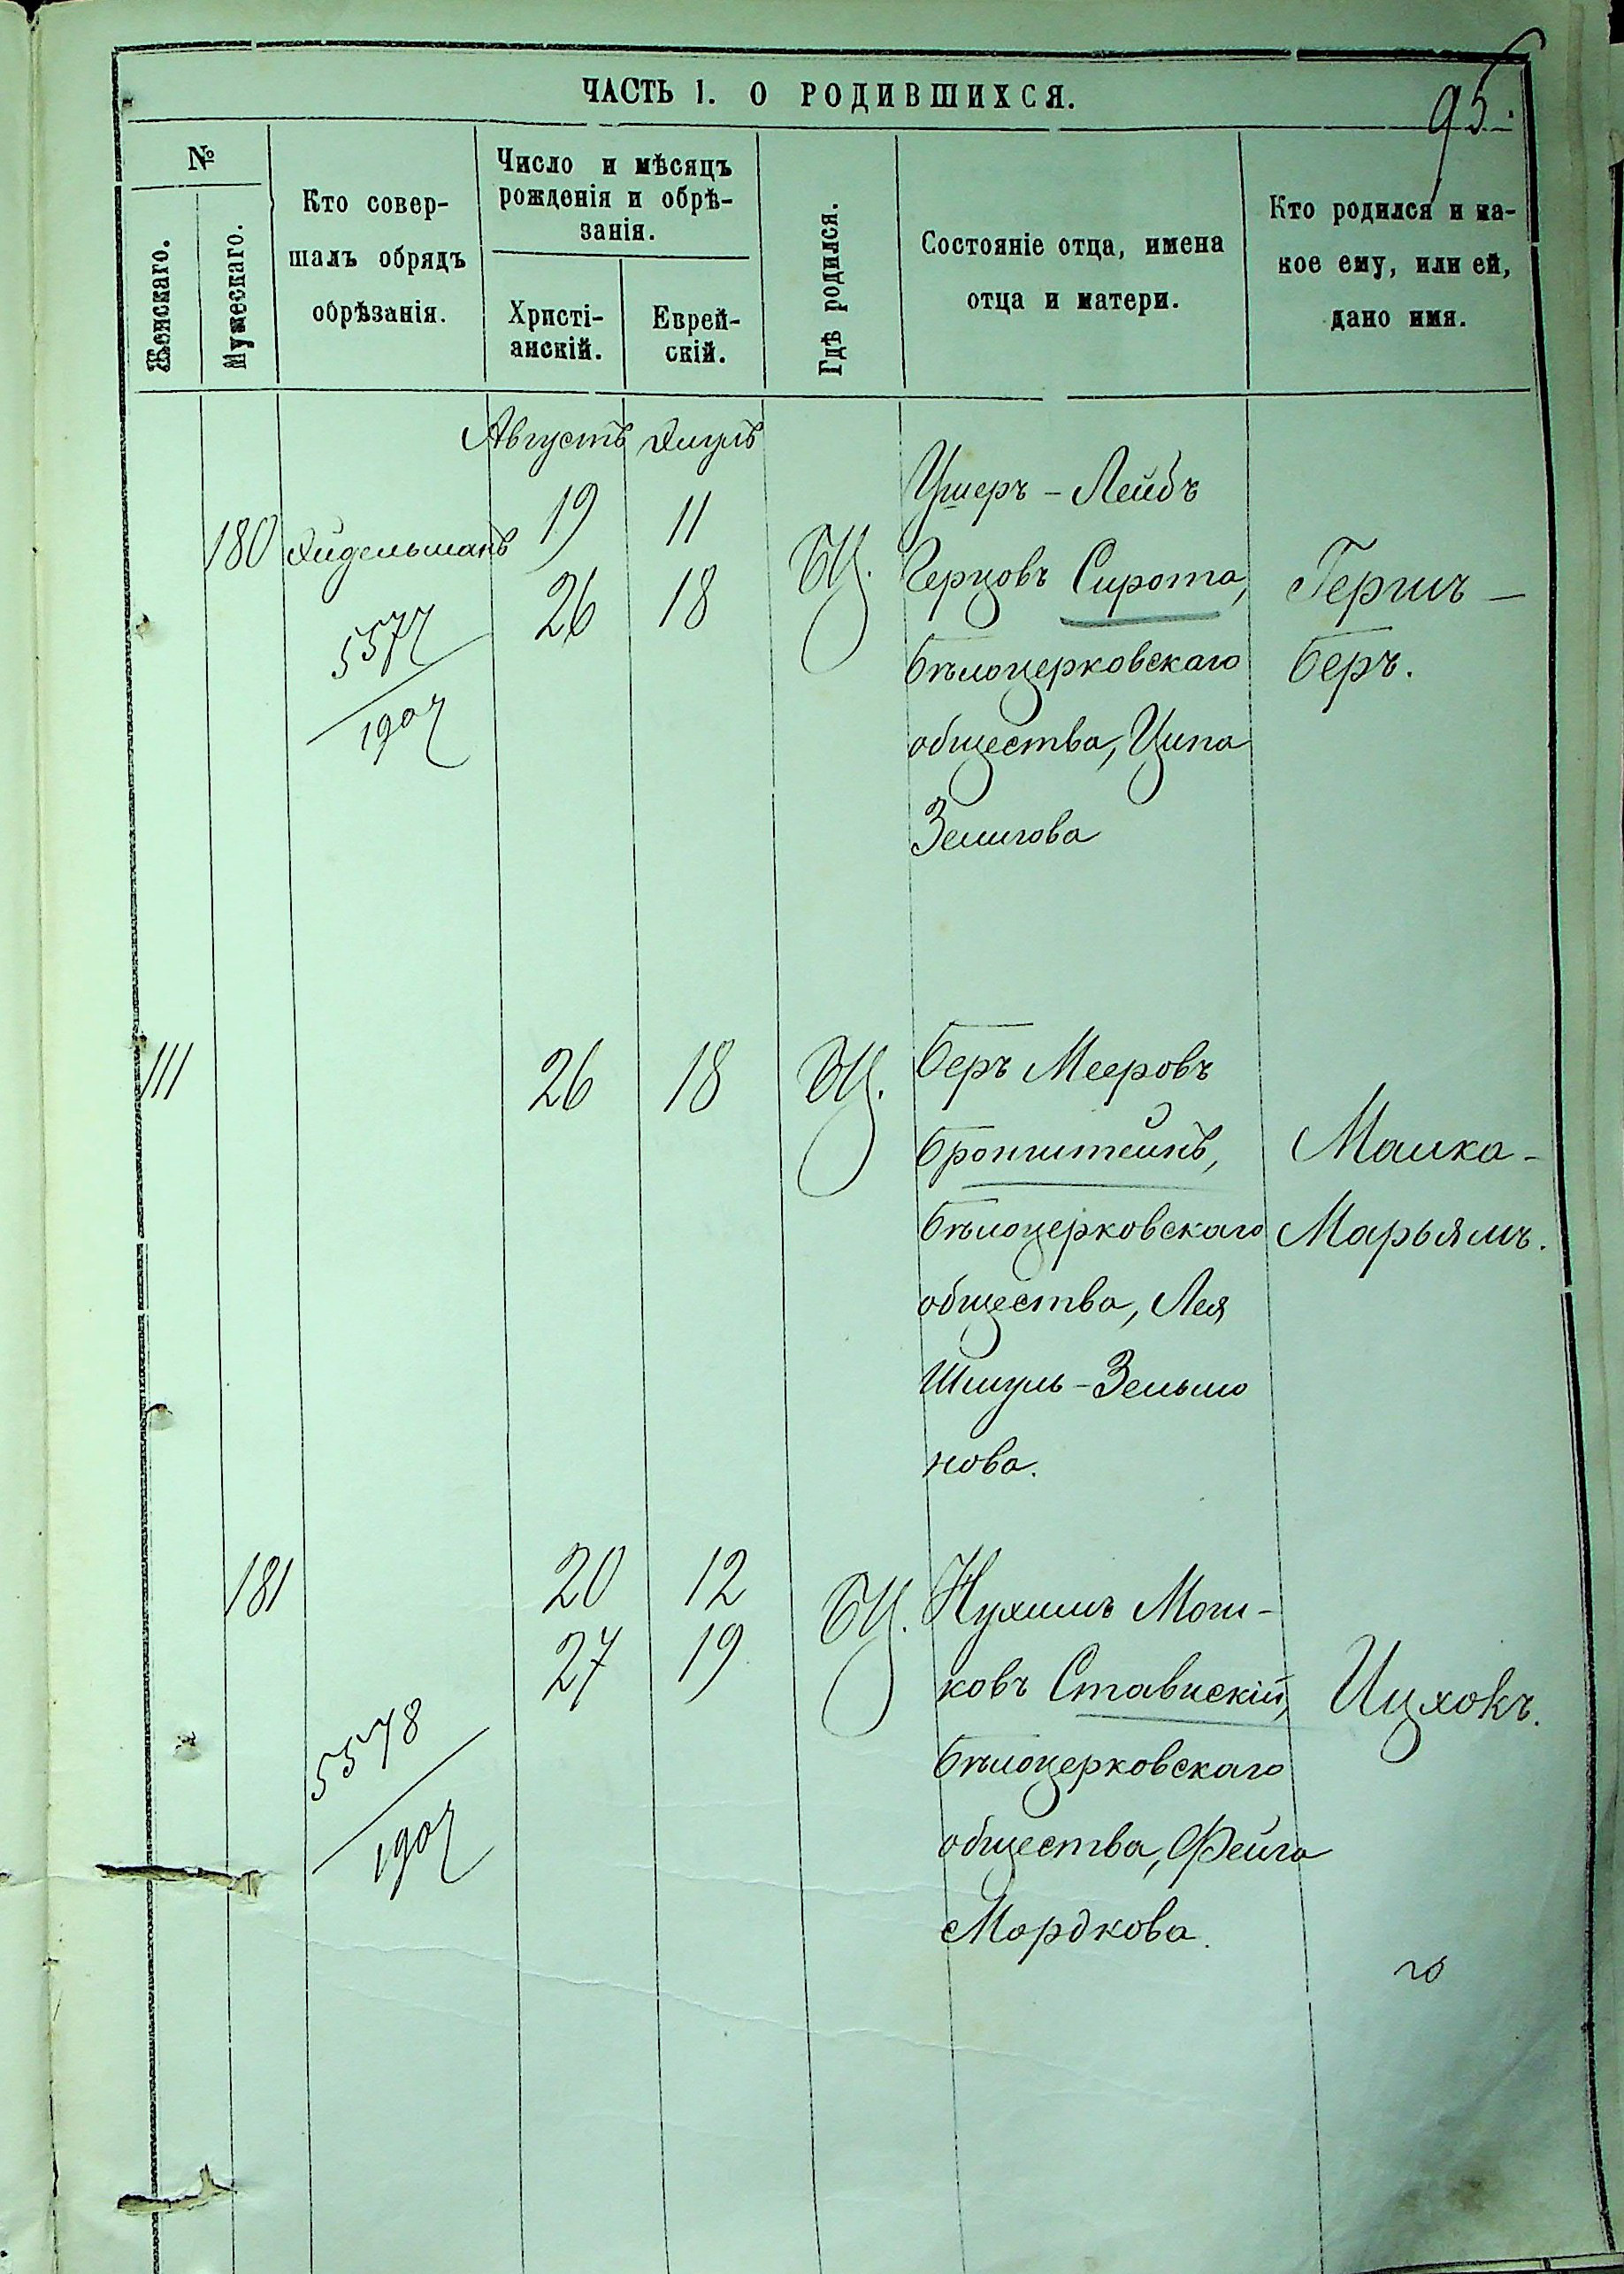 95.
ЧАСТЬ I. О РОДИВШИХСЯ.
№
Женскаго.
Мужескаго.
Кто совер-
шалъ обрядъ
обрѣзанія.
Число и мѣсяцъ
рожденія и обрѣ-
занія.
Христі-
анскій.
Еврей-
скій.
Гдѣ родился.
Состояніе отца, имена
отца и матери.
Кто родился и ка-
кое ему, или ей,
дано имя.
Августъ Элулъ
180 Эйдельманъ
5577
1907
19 11
26 18
БЦ.
Ушеръ - Лейбъ
Герцовъ Сирота,
Бѣлоцерковскаго
общества, Ципа
Зелигова
Гершъ -
Беръ.
111
26 18
БЦ.
Беръ Мееровъ
Бронштейнъ,
Бѣлоцерковскаго
общества, Лея
Шмуль - Зельмо
нова.
Малка -
Марьямъ.
181
5578
1907
20 12
27 19
БЦ.
Нухимъ Мош-
ковъ Ставискій,
Бѣлоцерковскаго
общества, Фейга
Мордкова.
Ицхокъ.